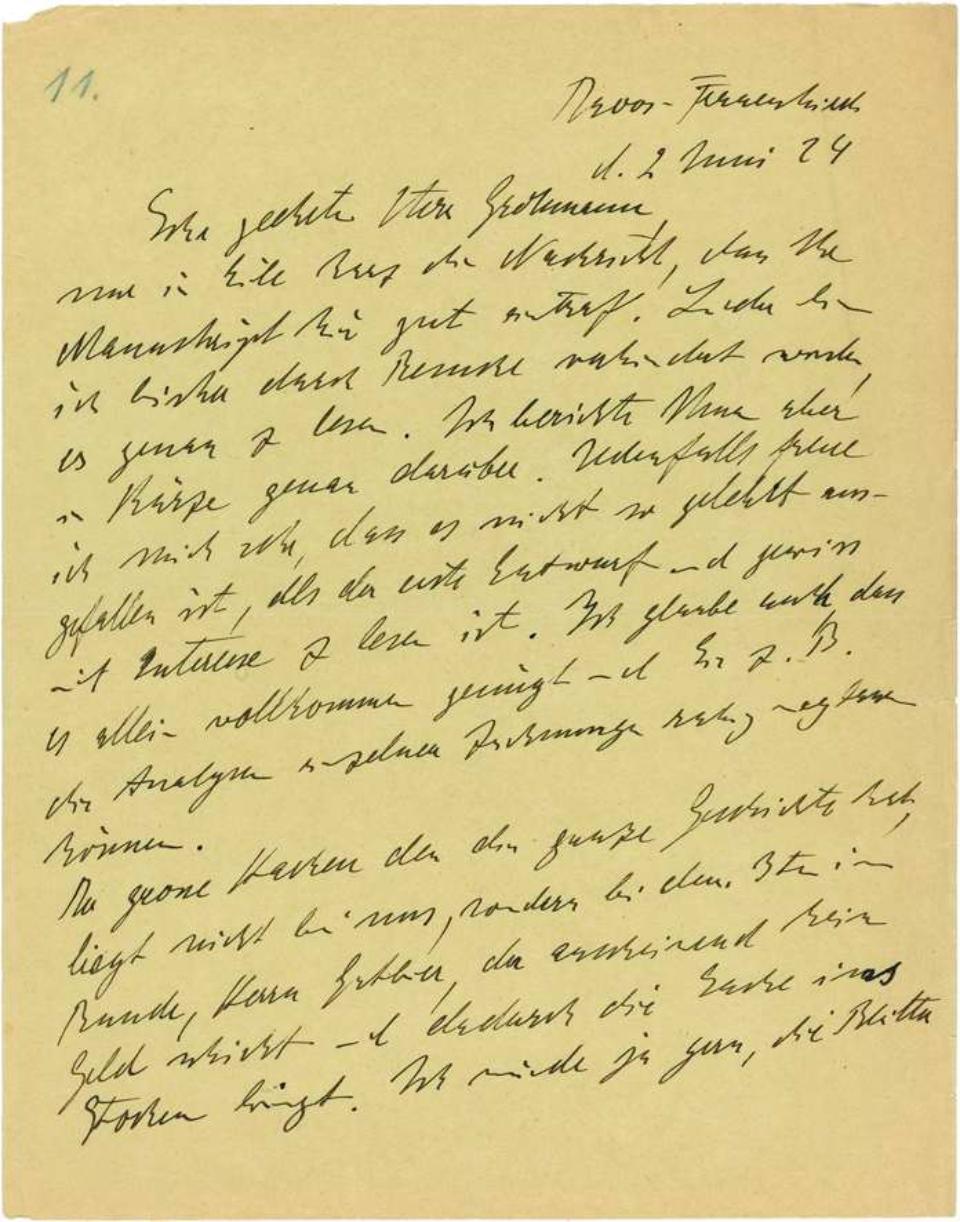 11.
Davos-Frauenkirch
d. 2 Juni 24
Sehr geehrter Herr Grohmann,
nur in Eile kurz die Nachricht, dass Ihr
Manuskript hier gut eintraf. Leider bin
ich bisher durch Besuche verhindert worden,
es genau z lesen. Ich berichte Ihnen aber
in Kürze genau darüber. Jedenfalls freue
ich mich sehr, dass es nicht so gelehrt aus-
gefallen ist, als der erste Entwurf und gewiss
mit Interesse z lesen ist. Ich glaube auch, dass
es allein vollkommen genügt und Sie z. B.
die Analysen einzelner Zeichnungen ruhig weglassen
können.
Der grosse Hacken den die ganze Geschichte hat,
liegt nicht bei uns, sondern bei dem 3ten im
Bunde, Herrn Gutbier, der anscheinend kein
Geld schickt und dadurch die Sache ins
Stocken bringt. Ich würde ja gern, die Blätter